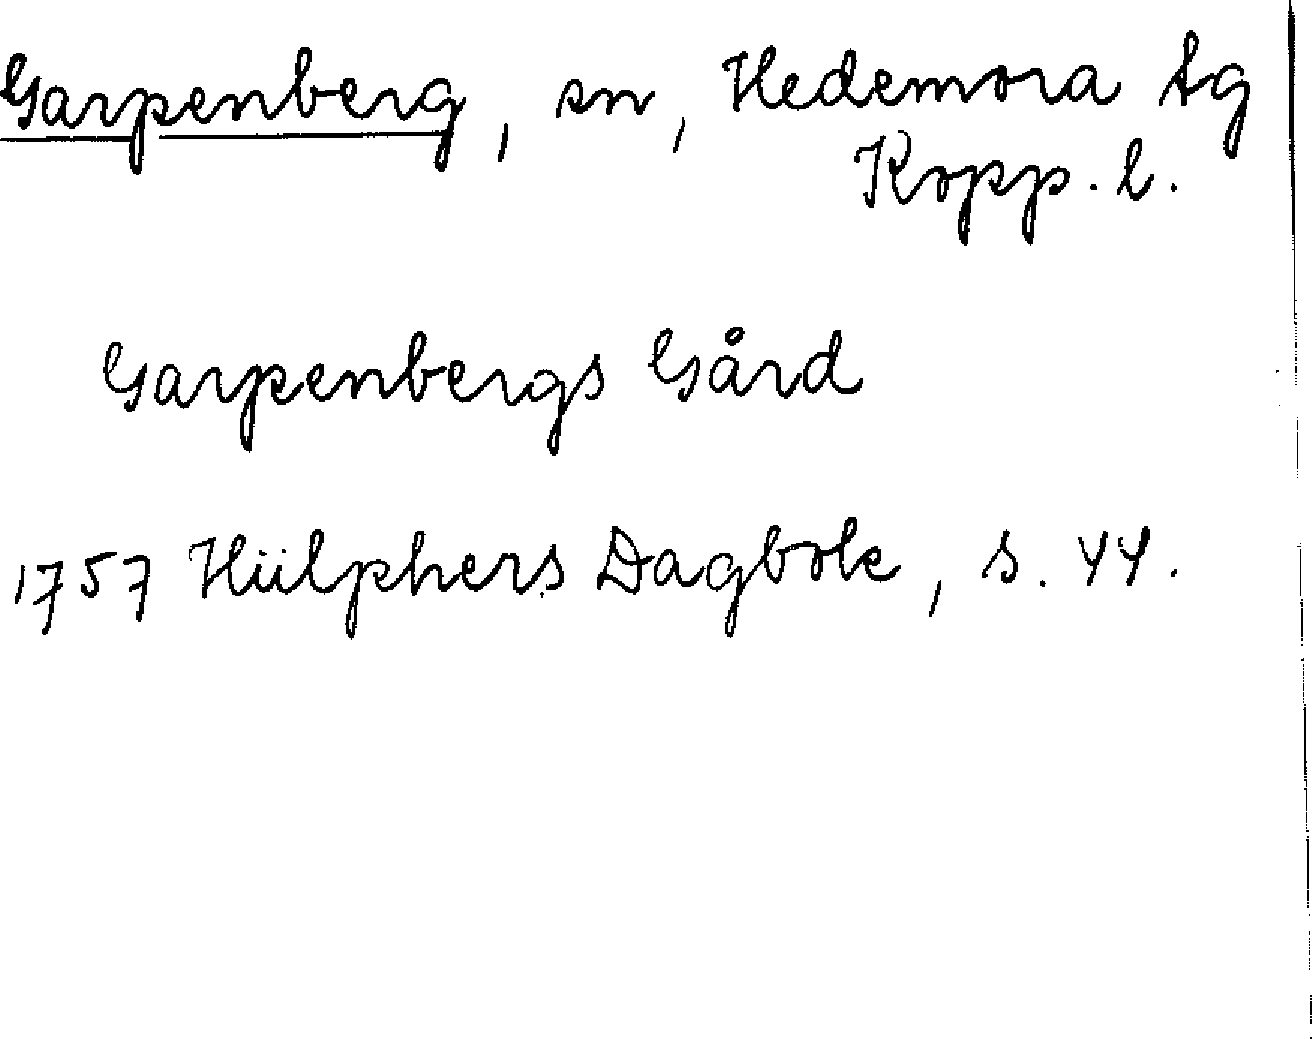 Garpenberg, sn, Hedemora tg
Kopp. l.
Garpenbergs Gård
1757 Hülphers Dagbok, s. 44.